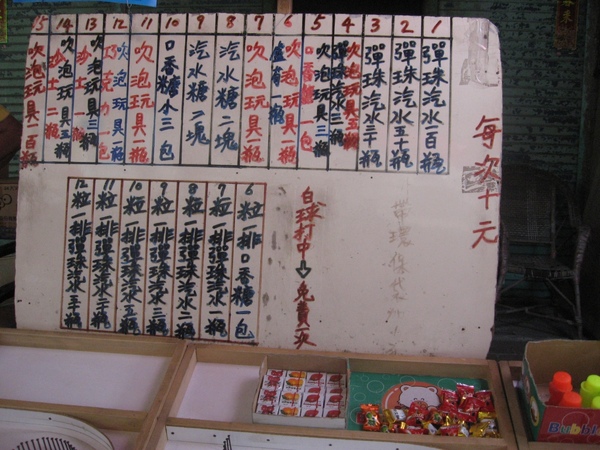 每次十元
1 彈珠汽水一百瓶
2 彈珠汽水五十瓶
3 彈珠汽水三十瓶
4 彈珠汽水三瓶
吹泡玩具五瓶
5 口香糖一包
吹泡玩具三瓶
6 吹泡玩具一包
一瓶
7 吹泡玩具一瓶
8 汽水糖二塊
9 汽水糖一塊
10 口香糖小三包
11 吹泡玩具一瓶
12 吹泡玩具一瓶
巧克力一包
13 吹泡玩具三瓶
沙士一瓶
14 吹泡玩具五瓶
沙士二瓶
15 吹泡玩具一百瓶
帶環保袋
白球打中→免費一次
6 粒一排口香糖一包
7 粒一排彈珠汽水一瓶
8 粒一排彈珠汽水二瓶
9 粒一排彈珠汽水三瓶
10 粒一排彈珠汽水五瓶
11 粒一排彈珠汽水二十瓶
12 粒一排彈珠汽水五十瓶
Bubbl